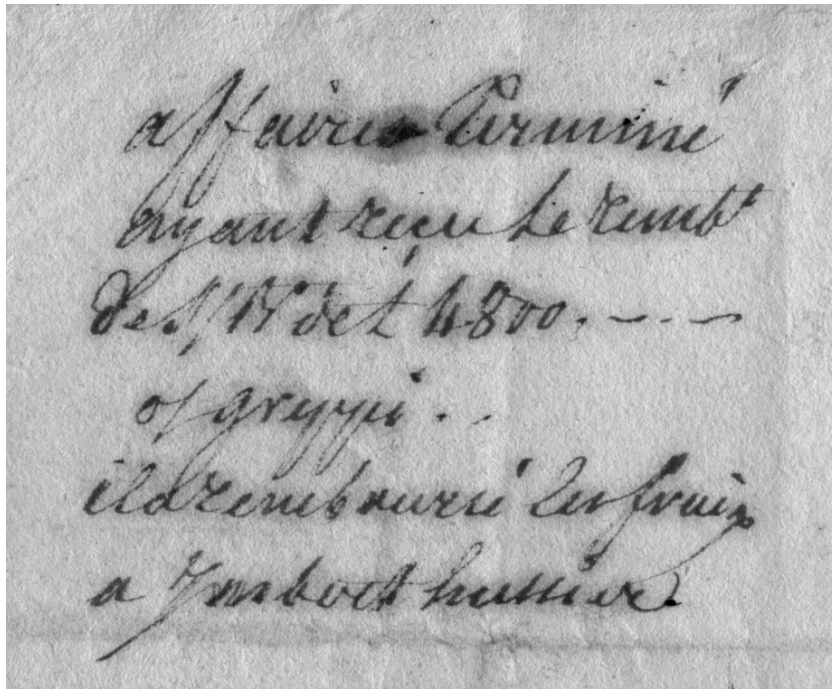 affaire terminé
ayant reçu le rembt
de s/ Bt de £ 4800. - . -
o/ greppi . .
il a remboursé les fraix
a Imbott hussier.